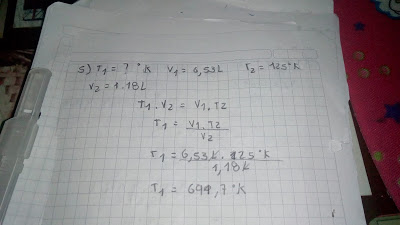 5) T1 = ? °K V1 = 6,53L T2 = 125°K
V2 = 1.18L
T1 . V2 = V1 . T2
T1 = V1 . T2
V2
T1 = 6,53L . 125°K
1,18L
T1 = 691,7°K